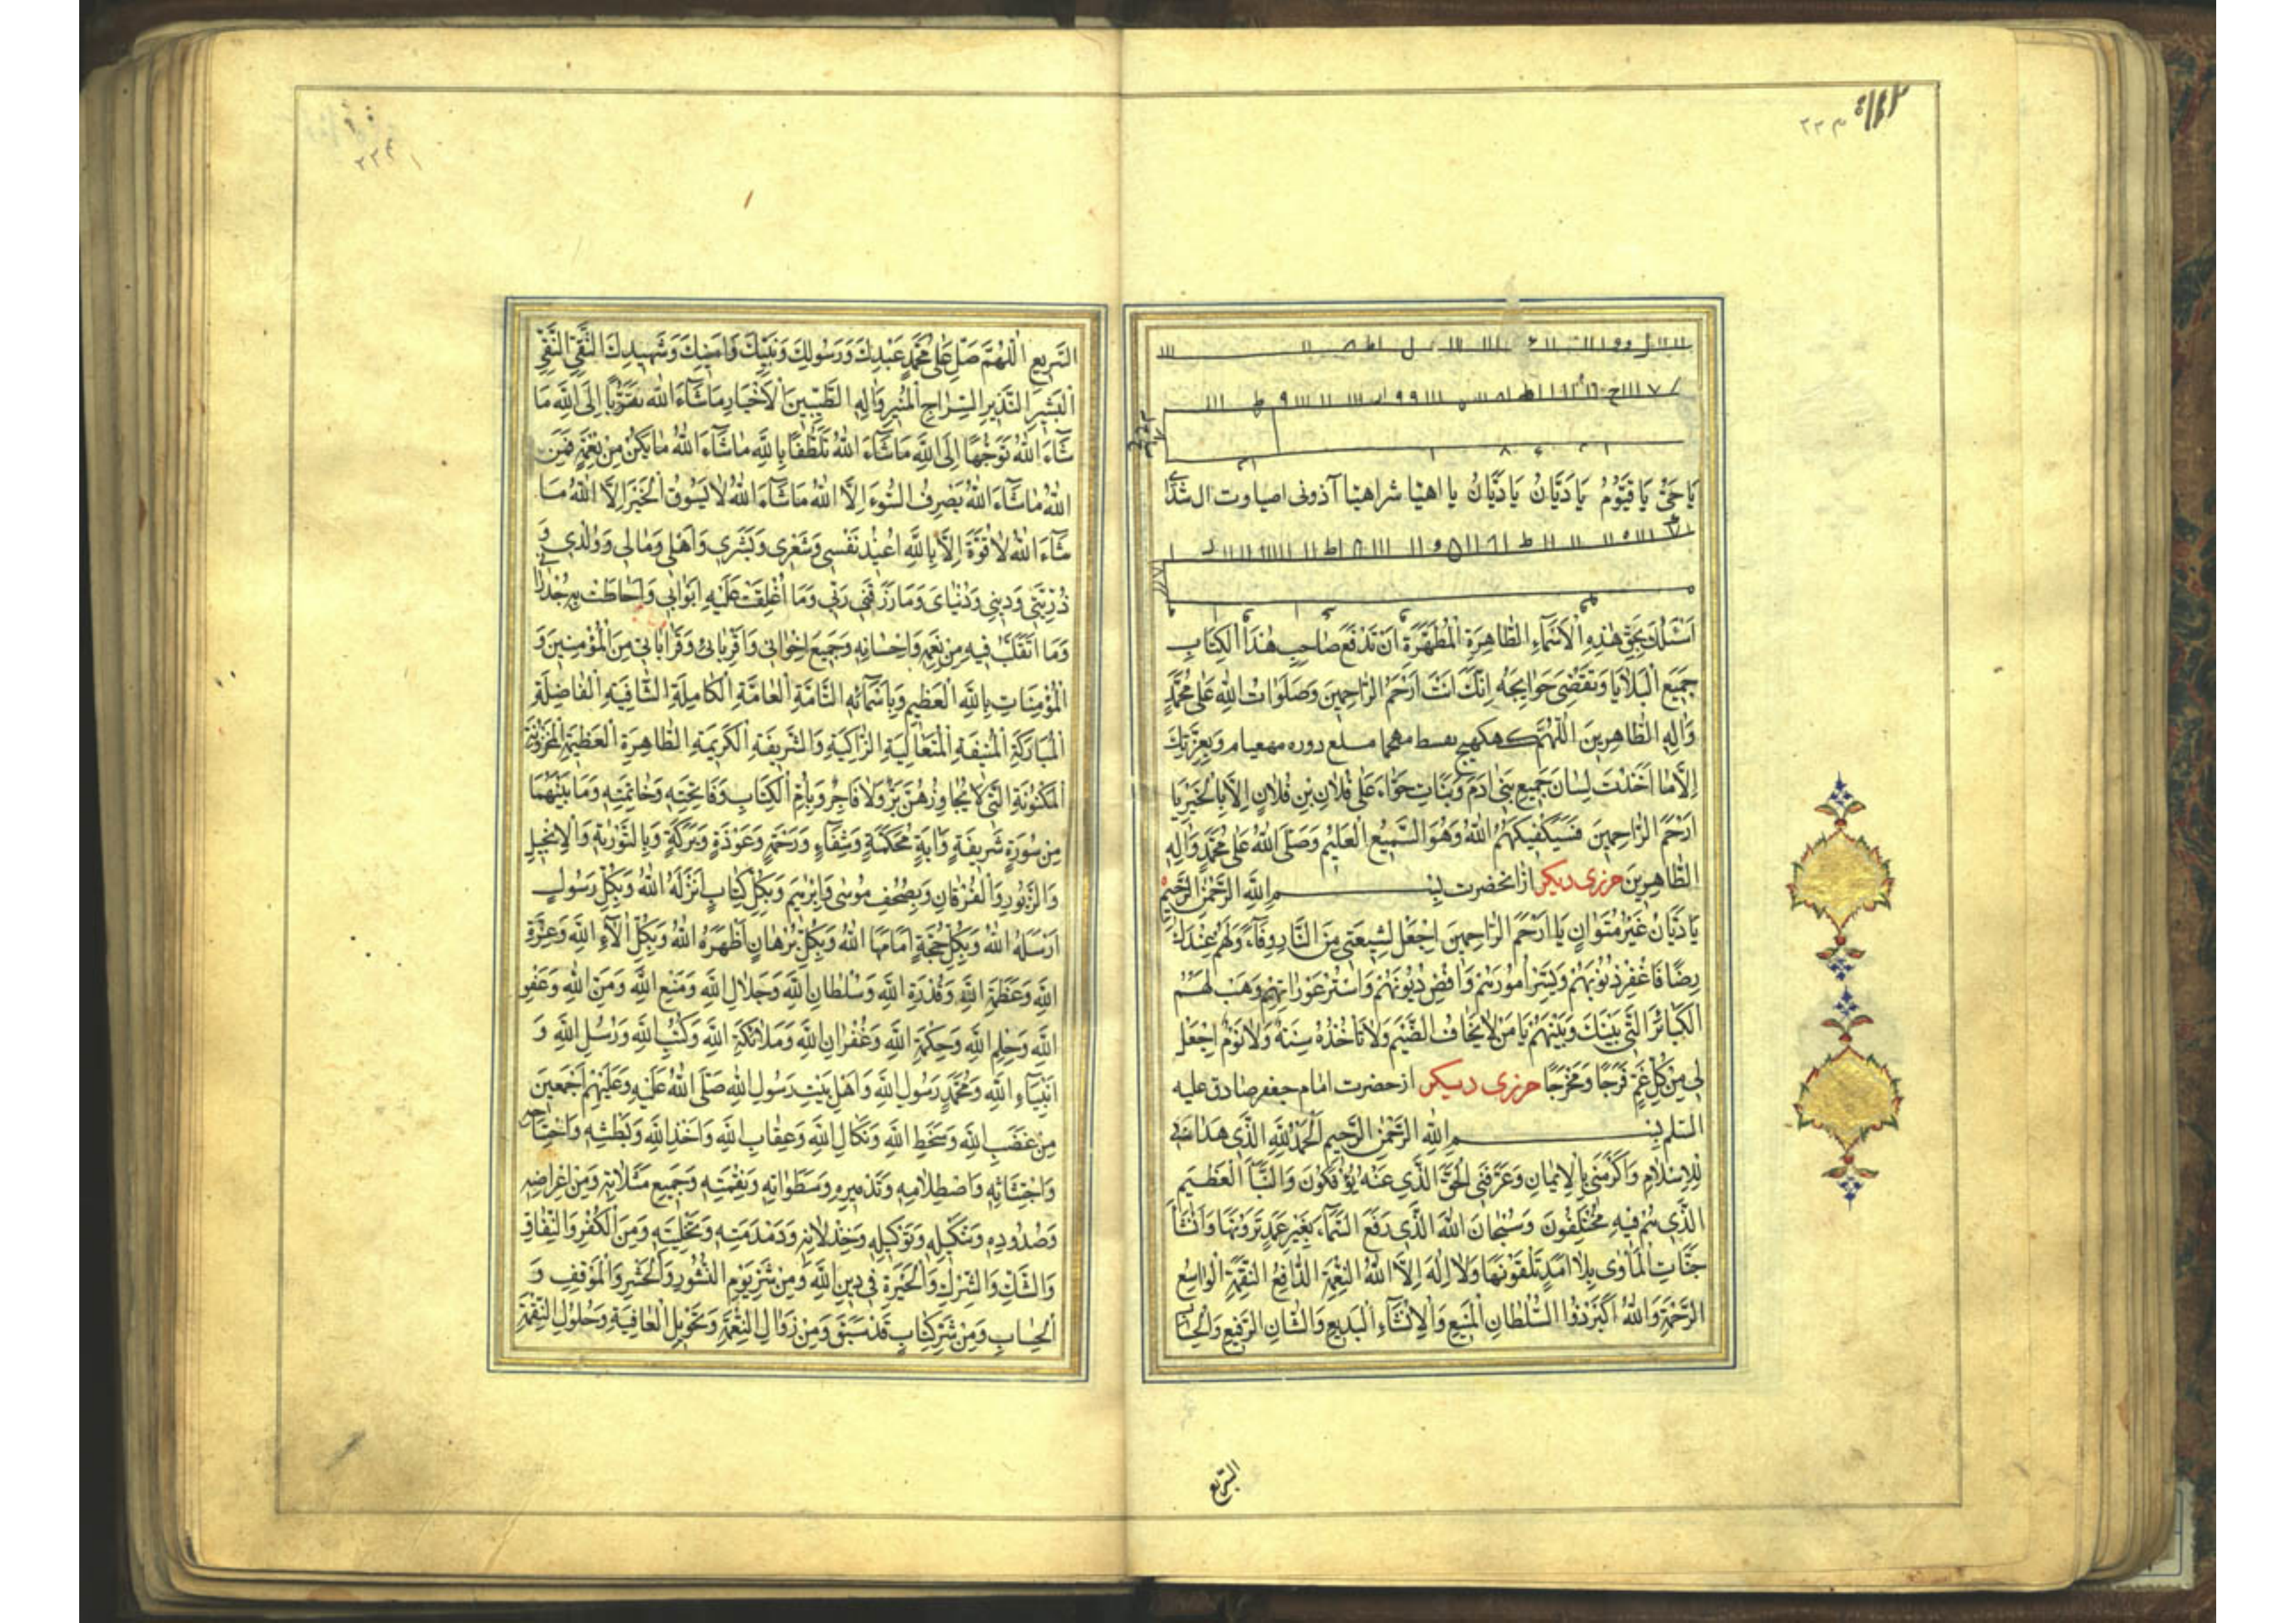 ۲۲۳
يَا حَيُّ يَا قَيُّومُ يَا دَيَّانُ يَا دَيَّانُ يا اهيّا شراهيّا آذونى اصباوت ال شدّى
اَسْئَلُكَ بِحَقِّ هٰذِهِ الْاَسْمَاءِ الطَّاهِرَةِ الْمُطَهَّرَةِ اَنْ تَدْفَعَ صٰاحِبِ هٰذَا الْكِتٰابِ
جَمِيعَ الْبَلٰايٰا وَتَقْضِىَ حَوٰايِجَهُ اِنَّكَ اَنْتَ اَرْحَمُ الرّٰاحِمِينَ وَصَلَوٰاتُ اللّٰهِ عَلٰى مُحَمَّدٍ
وَاٰلِهِ الطّٰاهِرِينَ اَللّٰهُمَّ كهكهيج بعسط مهحما مسلع دوره مهعيام وَبِعِزَّتِكَ
اِلَّا مٰا اَخَذْتَ لِسٰانَ جَمِيعِ بَنِى اٰدَمَ وَبَنٰاتِ حَوّٰاءَ عَلٰى فُلٰانِ بْنِ فُلٰانٍ اِلَّا بِالْخَيْرِ يٰا
اَرْحَمَ الرّٰاحِمِينَ فَسَيَكْفِيكَهُمُ اللّٰهُ وَهُوَ السَّمِيعُ الْعَلِيمُ وَصَلَّى اللّٰهُ عَلٰى مُحَمَّدٍ وَاٰلِهِ
الطّٰاهِرِينَ حرزى ديكر ازانحضرت بِسْمِ اللّٰهِ الرَّحْمٰنِ الرَّحِيمِ
يٰا دَيّٰانُ غَيْرَ مُتَوٰانٍ يٰا اَرْحَمَ الرّٰاحِمِينَ اِجْعَلْ لِشِيعَتِى مِنَ النّٰارِ وِقٰاءً وَلَهُمْ عِنْدَكَ
رِضًا فَاغْفِرْ ذُنُوبَهُمْ وَيَسِّرْ اُمُورَهُمْ وَاقْضِ دُيُونَهُمْ وَاسْتُرْ عَوْرٰاتِهِمْ وَهَبْ لَهُمُ
الْكَبٰائِرَ الَّتِى بَيْنَكَ وَبَيْنَهُمْ يٰا مَنْ لٰا يَخٰافُ الضَّيْمَ وَلٰا تَأْخُذُهُ سِنَةٌ وَلٰا نَوْمٌ اِجْعَلْ
لِى مِنْ كُلِّ غَمٍّ فَرَجًا وَمَخْرَجًا حرزى ديكر ازحضرت امام جعفر صادق عليه
السّلم بِسْمِ اللّٰهِ الرَّحْمٰنِ الرَّحِيمِ اَلْحَمْدُ لِلّٰهِ الَّذِى هَدٰانِى
لِلْاِسْلٰامِ وَاَكْرَمَنِى بِالْاِيمٰانِ وَعَرَّفَنِى الْحَقَّ الَّذِى عَنْهُ يُؤْفَكُونَ وَالنَّبَاَ الْعَظِيمَ
الَّذِى هُمْ فِيهِ مُخْتَلِفُونَ وَسُبْحٰانَ اللّٰهِ الَّذِى رَفَعَ السَّمٰاءَ بِغَيْرِ عَمَدٍ تَرَوْنَهٰا وَاَنْشَأَ
جَنّٰاتِ الْمَأْوٰى بِلٰا اَمَدٍ تَلْقَوْنَهٰا وَلٰا اِلٰهَ اِلَّا اللّٰهُ النِّعْمَةِ الدّٰافِعُ النِّقْمَةِ الْوٰاسِعُ
الرَّحْمَةِ وَاللّٰهُ اَكْبَرُ ذُوا السُّلْطٰانِ الْمَنِيعِ وَالْاِنْشٰاءِ الْبَدِيعِ وَالشّٰانِ الرَّفِيعِ وَالْحِسٰابِ
السّريع
السَّرِيعِ اَللّٰهُمَّ صَلِّ عَلٰى مُحَمَّدٍ عَبْدِكَ وَرَسُولِكَ وَنَبِيِّكَ وَاَمِينِكَ وَشَهِيدِكَ التَّقِىِّ النَّقِىِّ
الْبَشِيرِ النَّذِيرِ السِّرٰاجِ الْمُنِيرِ وَاٰلِهِ الطَّيِّبِينَ الْاَخْيٰارِ مٰا شٰاءَ اللّٰهُ تَقَرُّبًا اِلَى اللّٰهِ مٰا
شٰاءَ اللّٰهُ تَوَجُّهًا اِلَى اللّٰهِ مٰا شٰاءَ اللّٰهُ تَلَطُّفًا بِاللّٰهِ مٰا شٰاءَ اللّٰهُ مٰا يَكُنْ مِنْ نِعْمَةٍ فَمِنَ
اللّٰهِ مٰا شٰاءَ اللّٰهُ يَصْرِفُ السُّوءَ اِلَّا اللّٰهُ مٰا شٰاءَ اللّٰهُ لٰا يَسُوقُ الْخَيْرَ اِلَّا اللّٰهُ مٰا
شٰاءَ اللّٰهُ لٰا قُوَّةَ اِلَّا بِاللّٰهِ اُعِيذُ نَفْسِى وَشَعْرِى وَبَشَرِى وَاَهْلِى وَمٰالِى وَوَلَدِى وَ
ذُرِّيَّتِى وَدِينِى وَدُنْيٰاىَ وَمٰا رَزَقَنِى رَبِّى وَمٰا اُغْلِقَتْ عَلَيْهِ اَبْوٰابِى وَاَحٰاطَتْ بِهِ جُدْرٰانِى
وَمٰا اَتَقَلَّبُ فِيهِ مِنْ نِعَمِهِ وَاِحْسٰانِهِ وَجَمِيعَ اِخْوٰانِى وَاَقْرِبٰائِى وَقَرٰابٰاتِى مِنَ الْمُؤْمِنِينَ وَ
الْمُؤْمِنٰاتِ بِاللّٰهِ الْعَظِيمِ وَبِاَسْمٰائِهِ التّٰامَّةِ الْعٰامَّةِ الْكٰامِلَةِ الشّٰافِيَةِ الْفٰاضِلَةِ
الْمُبٰارَكَةِ الْمُنِيفَةِ الْمُتَعٰالِيَةِ الزّٰاكِيَةِ وَالشَّرِيفَةِ الْكَرِيمَةِ الطّٰاهِرَةِ الْعَظِيمَةِ الْمَخْزُونَةِ
الْمَكْنُونَةِ الَّتِى لٰا يُجٰاوِزُهُنَّ بَرٌّ وَلٰا فٰاجِرٌ وَبِاُمِّ الْكِتٰابِ وَفٰاتِحَتِهِ وَخٰاتِمَتِهِ وَمٰا بَيْنَهُمٰا
مِنْ سُورَةٍ شَرِيفَةٍ وَاٰيَةٍ مُحْكَمَةٍ وَشِفٰاءٍ وَرَحْمَةٍ وَعَوْذَةٍ وَبَرَكَةٍ وَبِالتَّوْرٰيةِ وَالْاِنْجِيلِ
وَالزَّبُورِ وَالْفُرْقٰانِ وَبِصُحُفِ مُوسٰى وَاِبْرٰهِيمَ وَبِكُلِّ كِتٰابٍ اَنْزَلَهُ اللّٰهُ وَبِكُلِّ رَسُولٍ
اَرْسَلَهُ اللّٰهُ وَبِكُلِّ حُجَّةٍ اَقٰامَهٰا اللّٰهُ وَبِكُلِّ بُرْهٰانٍ اَظْهَرَهُ اللّٰهُ وَبِكُلِّ اٰلٰاءِ اللّٰهِ وَعِزَّةِ
اللّٰهِ وَعَظَمَةِ اللّٰهِ وَقُدْرَةِ اللّٰهِ وَسُلْطٰانِ اللّٰهِ وَجَلٰالِ اللّٰهِ وَمَنْعِ اللّٰهِ وَمَنِّ اللّٰهِ وَعَفْوِ
اللّٰهِ وَحِلْمِ اللّٰهِ وَحِكْمَةِ اللّٰهِ وَغُفْرٰانِ اللّٰهِ وَمَلٰائِكَةِ اللّٰهِ وَكُتُبِ اللّٰهِ وَرُسُلِ اللّٰهِ وَ
اَنْبِيٰاءِ اللّٰهِ وَمُحَمَّدٍ رَسُولِ اللّٰهِ وَاَهْلِ بَيْتِ رَسُولِ اللّٰهِ صَلَّى اللّٰهُ عَلَيْهِ وَعَلَيْهِمْ اَجْمَعِينَ
مِنْ غَضَبِ اللّٰهِ وَسَخَطِ اللّٰهِ وَنَكٰالِ اللّٰهِ وَعِقٰابِ اللّٰهِ وَاَخْذِ اللّٰهِ وَبَطْشِهِ وَاجْتِيٰاحِهِ
وَاجْتِثٰاثِهِ وَاصْطِلٰامِهِ وَتَدْمِيرِهِ وَسَطَوٰاتِهِ وَنِقْمَتِهِ وَجَمِيعِ مَثُلٰاتِهِ وَمِنْ اِعْرٰاضِهِ
وَصُدُودِهِ وَتَنْكِيلِهِ وَتَوْكِيلِهِ وَخِذْلٰانِهِ وَدَمْدَمَتِهِ وَتَخْلِيَتِهِ وَمِنَ الْكُفْرِ وَالنِّفٰاقِ
وَالشَّكِّ وَالشِّرْكِ وَالْحَيْرَةِ فِى دِينِ اللّٰهِ وَمِنْ شَرِّ يَوْمِ النُّشُورِ وَالْحَشْرِ وَالْمَوْقِفِ وَ
الْحِسٰابِ وَمِنْ شَرِّ كِتٰابٍ قَدْ سَبَقَ وَمِنْ زَوٰالِ النِّعْمَةِ وَتَحْوِيلِ الْعٰافِيَةِ وَحُلُولِ النِّقْمَةِ